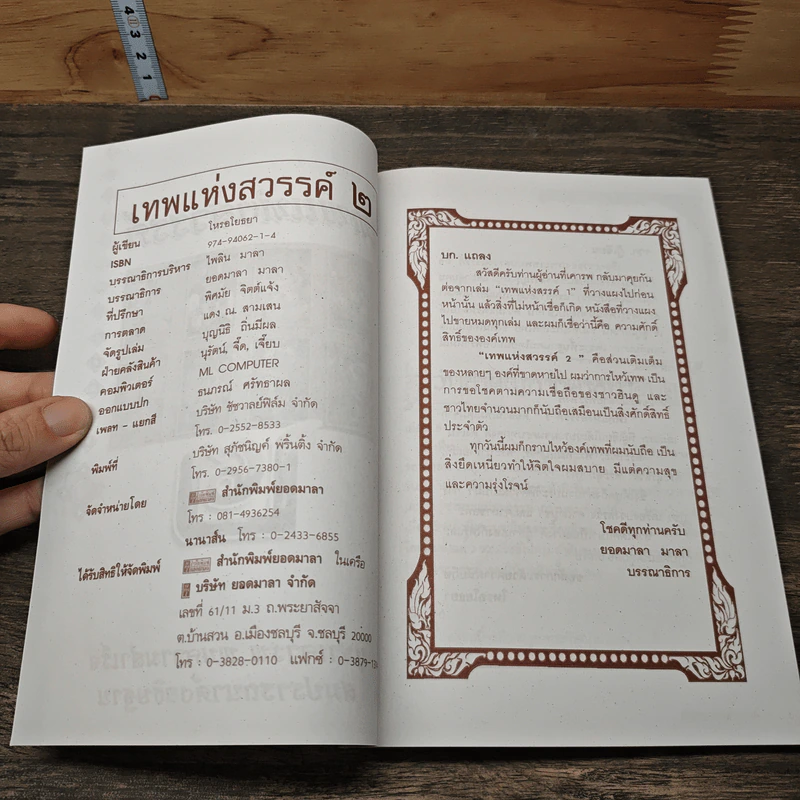 4
3
2
1
เทพแห่งสวรรค์ ๒
ผู้เขียน โหรอโยธยา
ISBN 974-94062-1-4
บรรณาธิการบริหาร ไพลิน มาลา
บรรณาธิการ ยอดมาลา มาลา
ที่ปรึกษา พิศมัย จิตต์แจ้ง
การตลาด แดง ณ. สามเสน
จัดรูปเล่ม บุญนิธิ ถิ่นมีผล
ฝ่ายคลังสินค้า นุรัตน์, จี๊ด, เจี๊ยบ
คอมพิวเตอร์ ML COMPUTER
ออกแบบปก ธนภรณ์ ศรัทธาผล
เพลท - แยกสี บริษัท ชัชวาลย์ฟิล์ม จำกัด
โทร. 0-2552-8533
พิมพ์ที่ บริษัท สุภัชนิญค์ พริ้นติ้ง จำกัด
โทร. 0-2956-7380-1
จัดจำหน่ายโดย สำนักพิมพ์ยอดมาลา
โทร : 081-4936254
นานาส์น โทร : 0-2433-6855
ได้รับสิทธิให้จัดพิมพ์ สำนักพิมพ์ยอดมาลา ในเครือ
บริษัท ยอดมาลา จำกัด
เลขที่ 61/11 ม.3 ถ.พระยาสัจจา
ต.บ้านสวน อ.เมืองชลบุรี จ.ชลบุรี 20000
โทร : 0-3828-0110 แฟกซ์ :
บก. แถลง
สวัสดีครับท่านผู้อ่านที่เคารพ กลับมาคุยกัน
ต่อจากเล่ม “เทพแห่งสวรรค์ 1” ที่วางแผงไปก่อน
หน้านั้น แล้วสิ่งที่ไม่น่าเชื่อก็เกิด หนังสือที่วางแผง
ไปขายหมดทุกเล่ม และผมก็เชื่อว่านี้คือ ความศักดิ์
สิทธิ์ขององค์เทพ
“เทพแห่งสวรรค์ 2 ” คือส่วนเติมเต็ม
ของหลายๆ องค์ที่ขาดหายไป ผมว่าการไหว้เทพ เป็น
การขอโชคตามความเชื่อถือของชาวฮินดู และ
ชาวไทยจำนวนมากก็นับถือเสมือนเป็นสิ่งศักดิ์สิทธิ์
ประจำตัว
ทุกวันนี้ผมก็กราบไหว้องค์เทพที่ผมนับถือ เป็น
สิ่งยึดเหนี่ยวทำให้จิตใจผมสบาย มีแต่ความสุข
และความรุ่งโรจน์
โชคดีทุกท่านครับ
ยอดมาลา มาลา
บรรณาธิการ